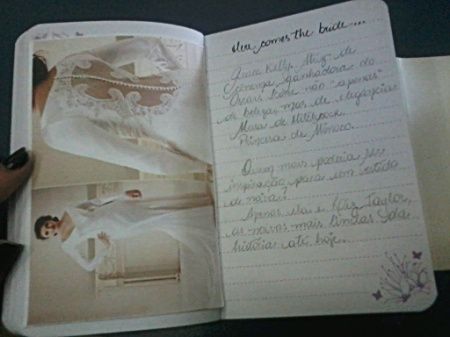 Here comes the bride...
Grace Kelly. Atriz de
cinema, ganhadora do
Oscar. Ícone não "apenas"
de beleza, mas de elegância.
Musa de Hitchcock.
Princesa de Mônaco.
Quem mais poderia ser
inspiração para um vestido
de noiva?
Apenas ela e Liz Taylor,
as noivas mais lindas da
história até hoje.